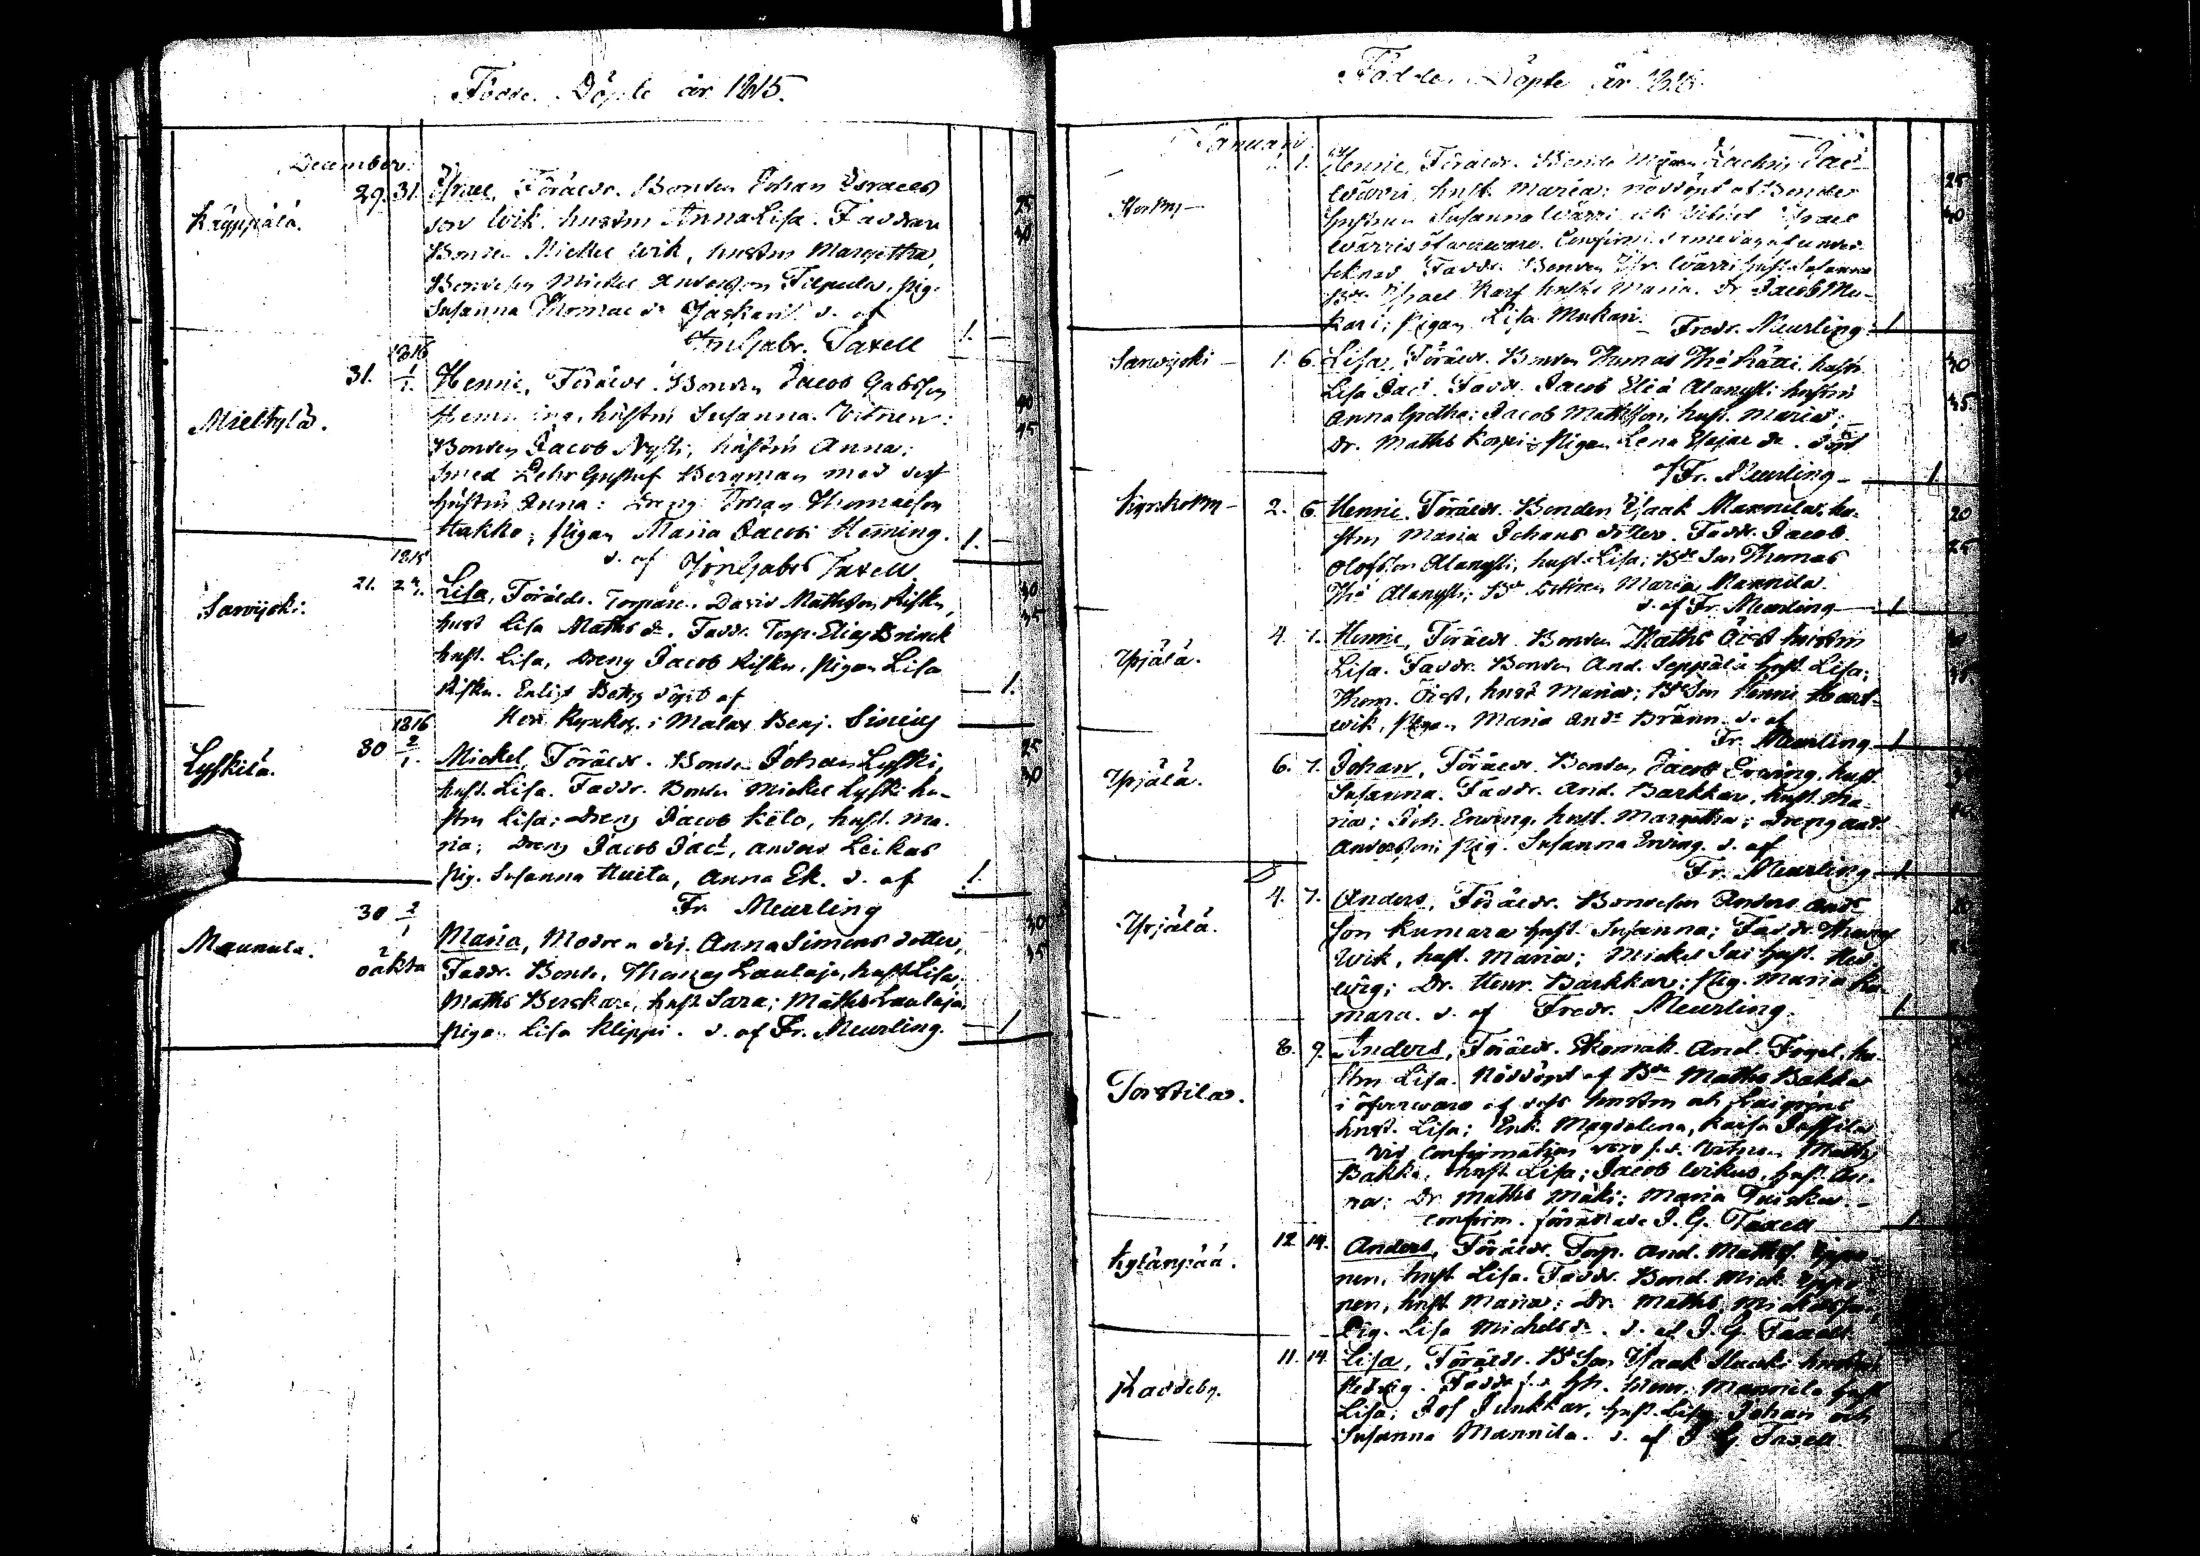 Födde, Döpte år 1815.
December.
Käyppälä. 29. 31. Israel, Föräldr. Bonden Johan Israels 25
son Wik, hustru Anna Lisa. Faddrar 30
Bonden Mickel Wik, hustru Margetha,
Bondeson Mickel Andersson Filpula, pig.
Susanna Thomae dr Jaskari. d. af
Joh Gabr. Taxell 1.
1816
Mieltylä. 31. 1/1. Henric, Föräldr. Bonden Jacob Gabrsson 40
Henning, hustru Susanna. Vitnen: 45
Bonden Jacob Nysti, hustru Anna;
Smed Lehr Gustaf Bergman med dess
hustru Anna: Dreng Johan Thomasson
Hakko, pigan Maria Jacobi Henning. 1.
d. af Joh Gabr Taxell
1815
Sarvijoki. 21. 24. Lisa, Föräldr. Torparen David Mathsson Risku, 30
hust Lisa Maths dr. Faddr. Torp. Elias Brinck 35
hust. Lisa, Dreng Jacob Risku, pigan Lisa
Risku. Enligt Betyg döpt af 1.
Herr Kyrkoh. i Malax Benj. Sirelius
1816
Lyskilä. 30 2/1. Mickel, Föräldr. Bonden Johan Lyski, 25
hust. Lisa. Faddr. Bonden Mickel Lyski hu- 30
stru Lisa; Dreng Jacob Kelo, hust. Ma-
ria; Dreng Jacob Jac:, Anders Leikas
Pig. Susanna Huita, Anna Ek. d. af 1.
Fr. Meurling
Maunula. 30 2/1 Maria, Modren Inh. Anna Simons dotter, 30
oäkta Faddr. Bonde, Thomas Laulaja, hust Lisa, 35
Maths Berskare, hust Sara; Maths Laulaja,
pigan Lisa Klippi. d. af Fr. Meurling. 1
Födde, Döpte år 1816.
Januari
1. Henric, Föräldr. Bonde Zachris Jac:
Wärri, hust. Maria; nöddöpt af Bonden 25
hustrun Susanna Wärri Israel 30
Wärris öfwerwaro. Confirm. samma dag af under-
teknad. Faddr. Bonden Isr. Wärri hust Susanna
Bde Israel Karf hustr Maria. Dr Jacob Mu-
kari; Pigan Lisa Mukari. Fredr. Meurling. 1
Sarvijoki 1. 6. Lisa, Föräldr. Bonden Thomas Tho: Lätti, hustr. 40
Lisa Jac: Faddr. Jacob Elia Alanysti hustru
Anna Gretha; Jacob Mattsson, hust. Maria; 45
Dr. Maths Korpi; pigan Lena Esaiae dr. döpt
Fr. Meurling 1
2. 6. Henric, Föräldr. Bonden Isaak Mannila, hu- 20
stru Maria Johans dotter. Faddr. Jacob
Olofsson Alanysti, hust. Lisa; Bde Son Thomas 25
Tho: Alanysti; Bde Dottren Maria Mannila.
d. af Fr. Meurling 1
Yrjälä. 4. 7. Henric, Föräldr. Bonden Maths Öist hustru
Lisa. Faddr. Bonden And. Seppälä hust. Lisa;
Thom. Öist, hust Maria; Bde Son Henric Hart-
wik, Pigan Maria And: Bränn. d. af
Fr. Meurling 1
Yrjälä. 6. 7. Johan, Föräldr. Bonden Jacob Erwing, hust.
Susanna. Faddr. And. Barkkar, hust. Ma-
ria; Joh. Erwing, hust. Margetha; Dreng And.
Andersson; Pig. Susanna Erwing. d. af
Fr. Meurling 1
Yrjälä. 4. 7. Anders, Föräldr. Bondeson Anders Ands
son Kumara hust. Susanna; Faddr. Thomas
Wik, hust. Maria; Mickel Sai hust. Hed-
wig; Dr. Henr. Barkkar; Pig. Maria Ku-
mara. d. af Fredr. Meurling. 1
Torstila. 8. 9. Anders, Föräldr. Skomak. And. Fogel, hu-
stru Lisa. Nöddöpt af Bde Maths Bakka
i öfwerwaro af dess hustru och
hust. Lisa; Enk. Magdalena, Kaisa Jossila
Vid Confirmation woro s.s. Vitnen Maths
Bakka, hust Lisa; Jacob Wikus, hust. An-
na; Dr. Maths Mäki; Maria
confirm. förrättade J. G. Taxell 1
Kylänpää. 12 14. Anders, Föräldr. Torp. And. Mathss.
nen, hust Lisa. Faddr. Bond. Mick.
nen, hust Maria; Dr. Maths Mickelsson,
Pig. Lisa Michels dr. d. af J. G. Taxell.
Kaddeby. 11. 14. Lisa, Föräldr. Bde Son Isaak hustru
Hedvig. Faddr. Henr. Mannila hust
Lisa; Jos Junkkar, hust. Lisa, Johan och
Susanna Mannila. d. af J G. Taxell.